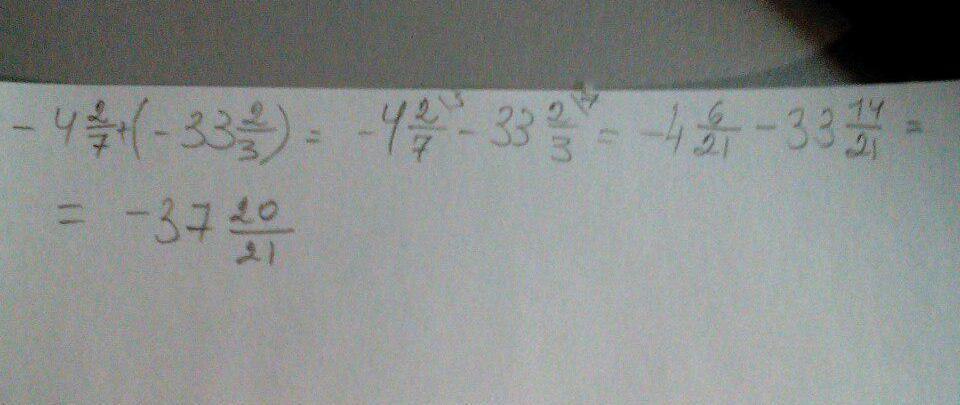 - 4 2/7 + (- 33 2/3) = - 4 2/7 \3 - 33 2/3 \7 = - 4 6/21 - 33 14/21 =
= - 37 20/21